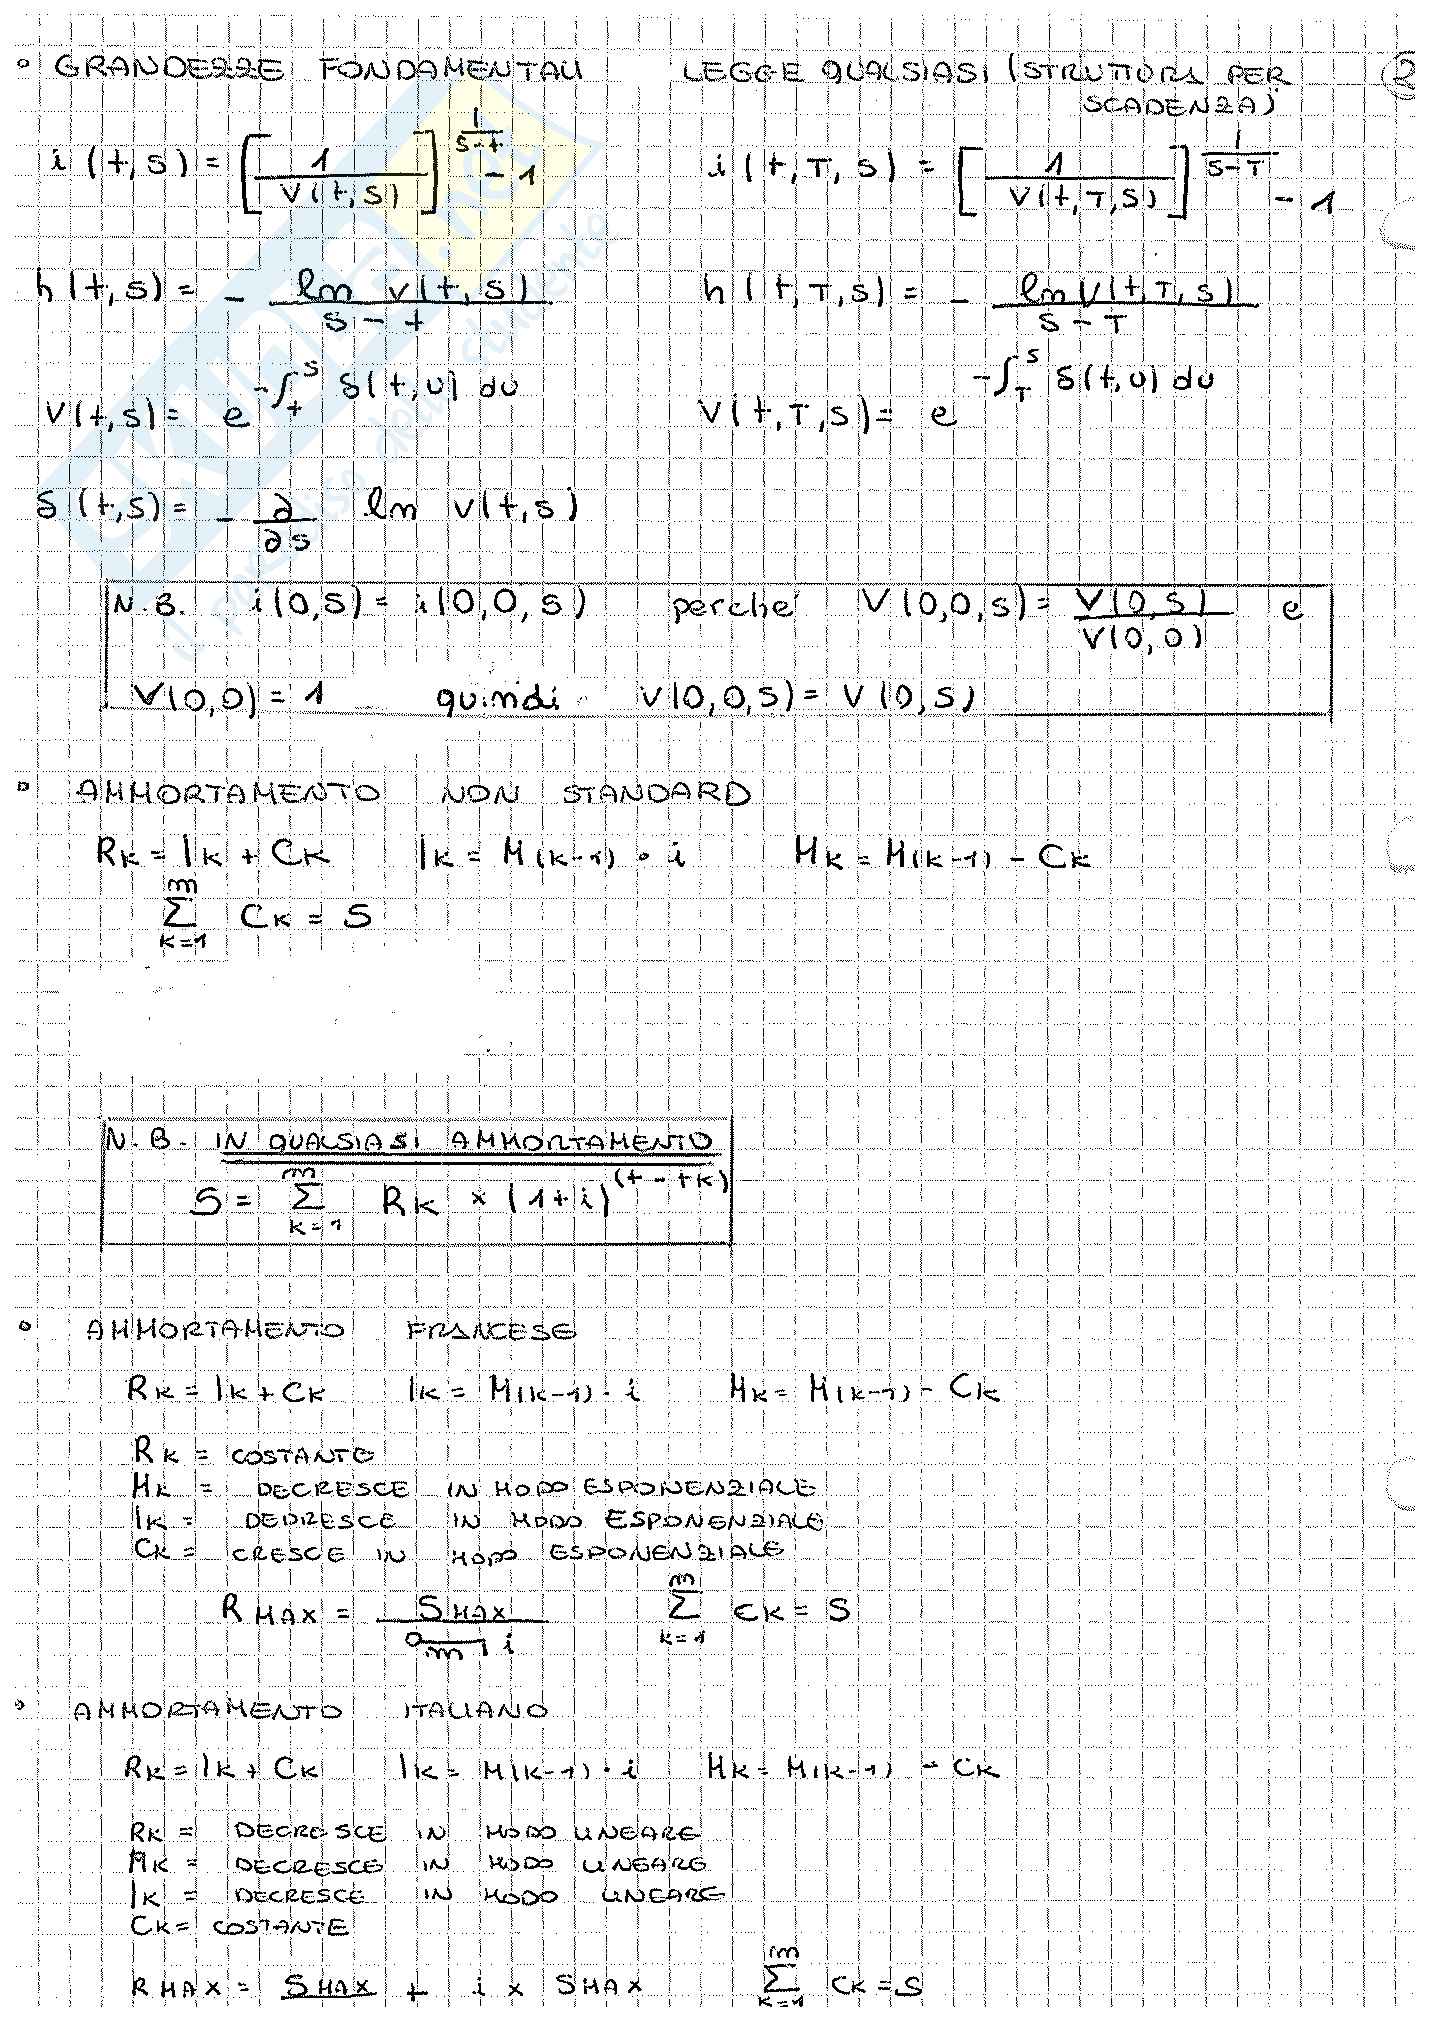 ° GRANDEZZE FONDAMENTALI LEGGE QUALSIASI (STRUTTURA PER SCADENZA) 2
i(t,s) = [1 / v(t,s)]^(1/(s-t)) - 1 i(t,T,s) = [1 / v(t,T,s)]^(1/(s-T)) - 1
h(t,s) = - ln v(t,s) / (s-t) h(t,T,s) = - ln v(t,T,s) / (s-T)
v(t,s) = e^(-∫_t^s δ(t,u) du) v(t,T,s) = e^(-∫_T^s δ(t,u) du)
δ(t,s) = - ∂/∂s ln v(t,s)
N.B. i(0,s) = i(0,0,s) perche' V(0,0,s) = V(0,s) / V(0,0) e
V(0,0) = 1 quindi V(0,0,s) = V(0,s)
° AMMORTAMENTO NON STANDARD
RK = IK + CK IK = M(K-1) • i MK = M(K-1) - CK
∑_{K=1}^{m} CK = S
N.B. IN QUALSIASI AMMORTAMENTO
S = ∑_{K=1}^{m} RK × (1+i)^(t-tK)
° AMMORTAMENTO FRANCESE
RK = IK + CK IK = M(K-1) · i MK = M(K-1) - CK
RK = COSTANTE
MK = DECRESCE IN MODO ESPONENZIALE
IK = DECRESCE IN MODO ESPONENZIALE
CK = CRESCE IN MODO ESPONENZIALE
R MAX = S MAX / a m̅| i ∑_{K=1}^{m} CK = S
° AMMORTAMENTO ITALIANO
RK = IK + CK IK = M(K-1) · i MK = M(K-1) - CK
RK = DECRESCE IN MODO LINEARE
MK = DECRESCE IN MODO LINEARE
IK = DECRESCE IN MODO LINEARE
CK = COSTANTE
R MAX = S MAX + i × S MAX ∑_{K=1}^{m} CK = S